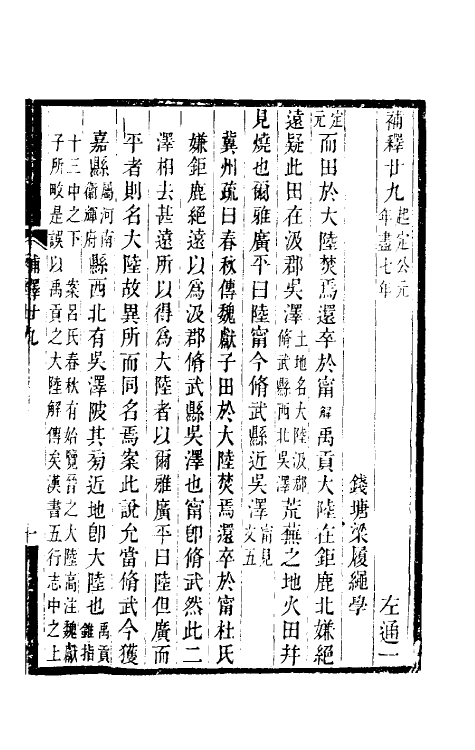 補釋廿九 起定公元年盡七年 左通一
錢塘梁履繩學
定元 而田於大陸焚焉還卒於甯 解 禹貢大陸在鉅鹿北嫌絕
遠疑此田在汲郡吳澤 土地名大陸汲郡脩武縣西北吳澤 荒蕪之地火田幷
見燒也爾雅廣平曰陸甯今脩武縣近吳澤 甯見文五
冀州疏曰春秋傳魏獻子田於大陸焚焉還卒於甯杜氏
嫌鉅鹿絕遠以爲汲郡脩武縣吳澤也甯卽脩武然此二
澤相去甚遠所以得爲大陸者以爾雅廣平曰陸但廣而
平者則名大陸故異所而同名焉案此說允當脩武今獲
嘉縣 屬河南衛輝府 縣西北有吳澤陂其旁近地卽大陸也 禹貢錐指
十三中之下 案呂氏春秋有始覽晉之大陸高注魏獻
子所畋是誤以禹貢之大陸解傳矣漢書五行志中之上
補釋廿九 一